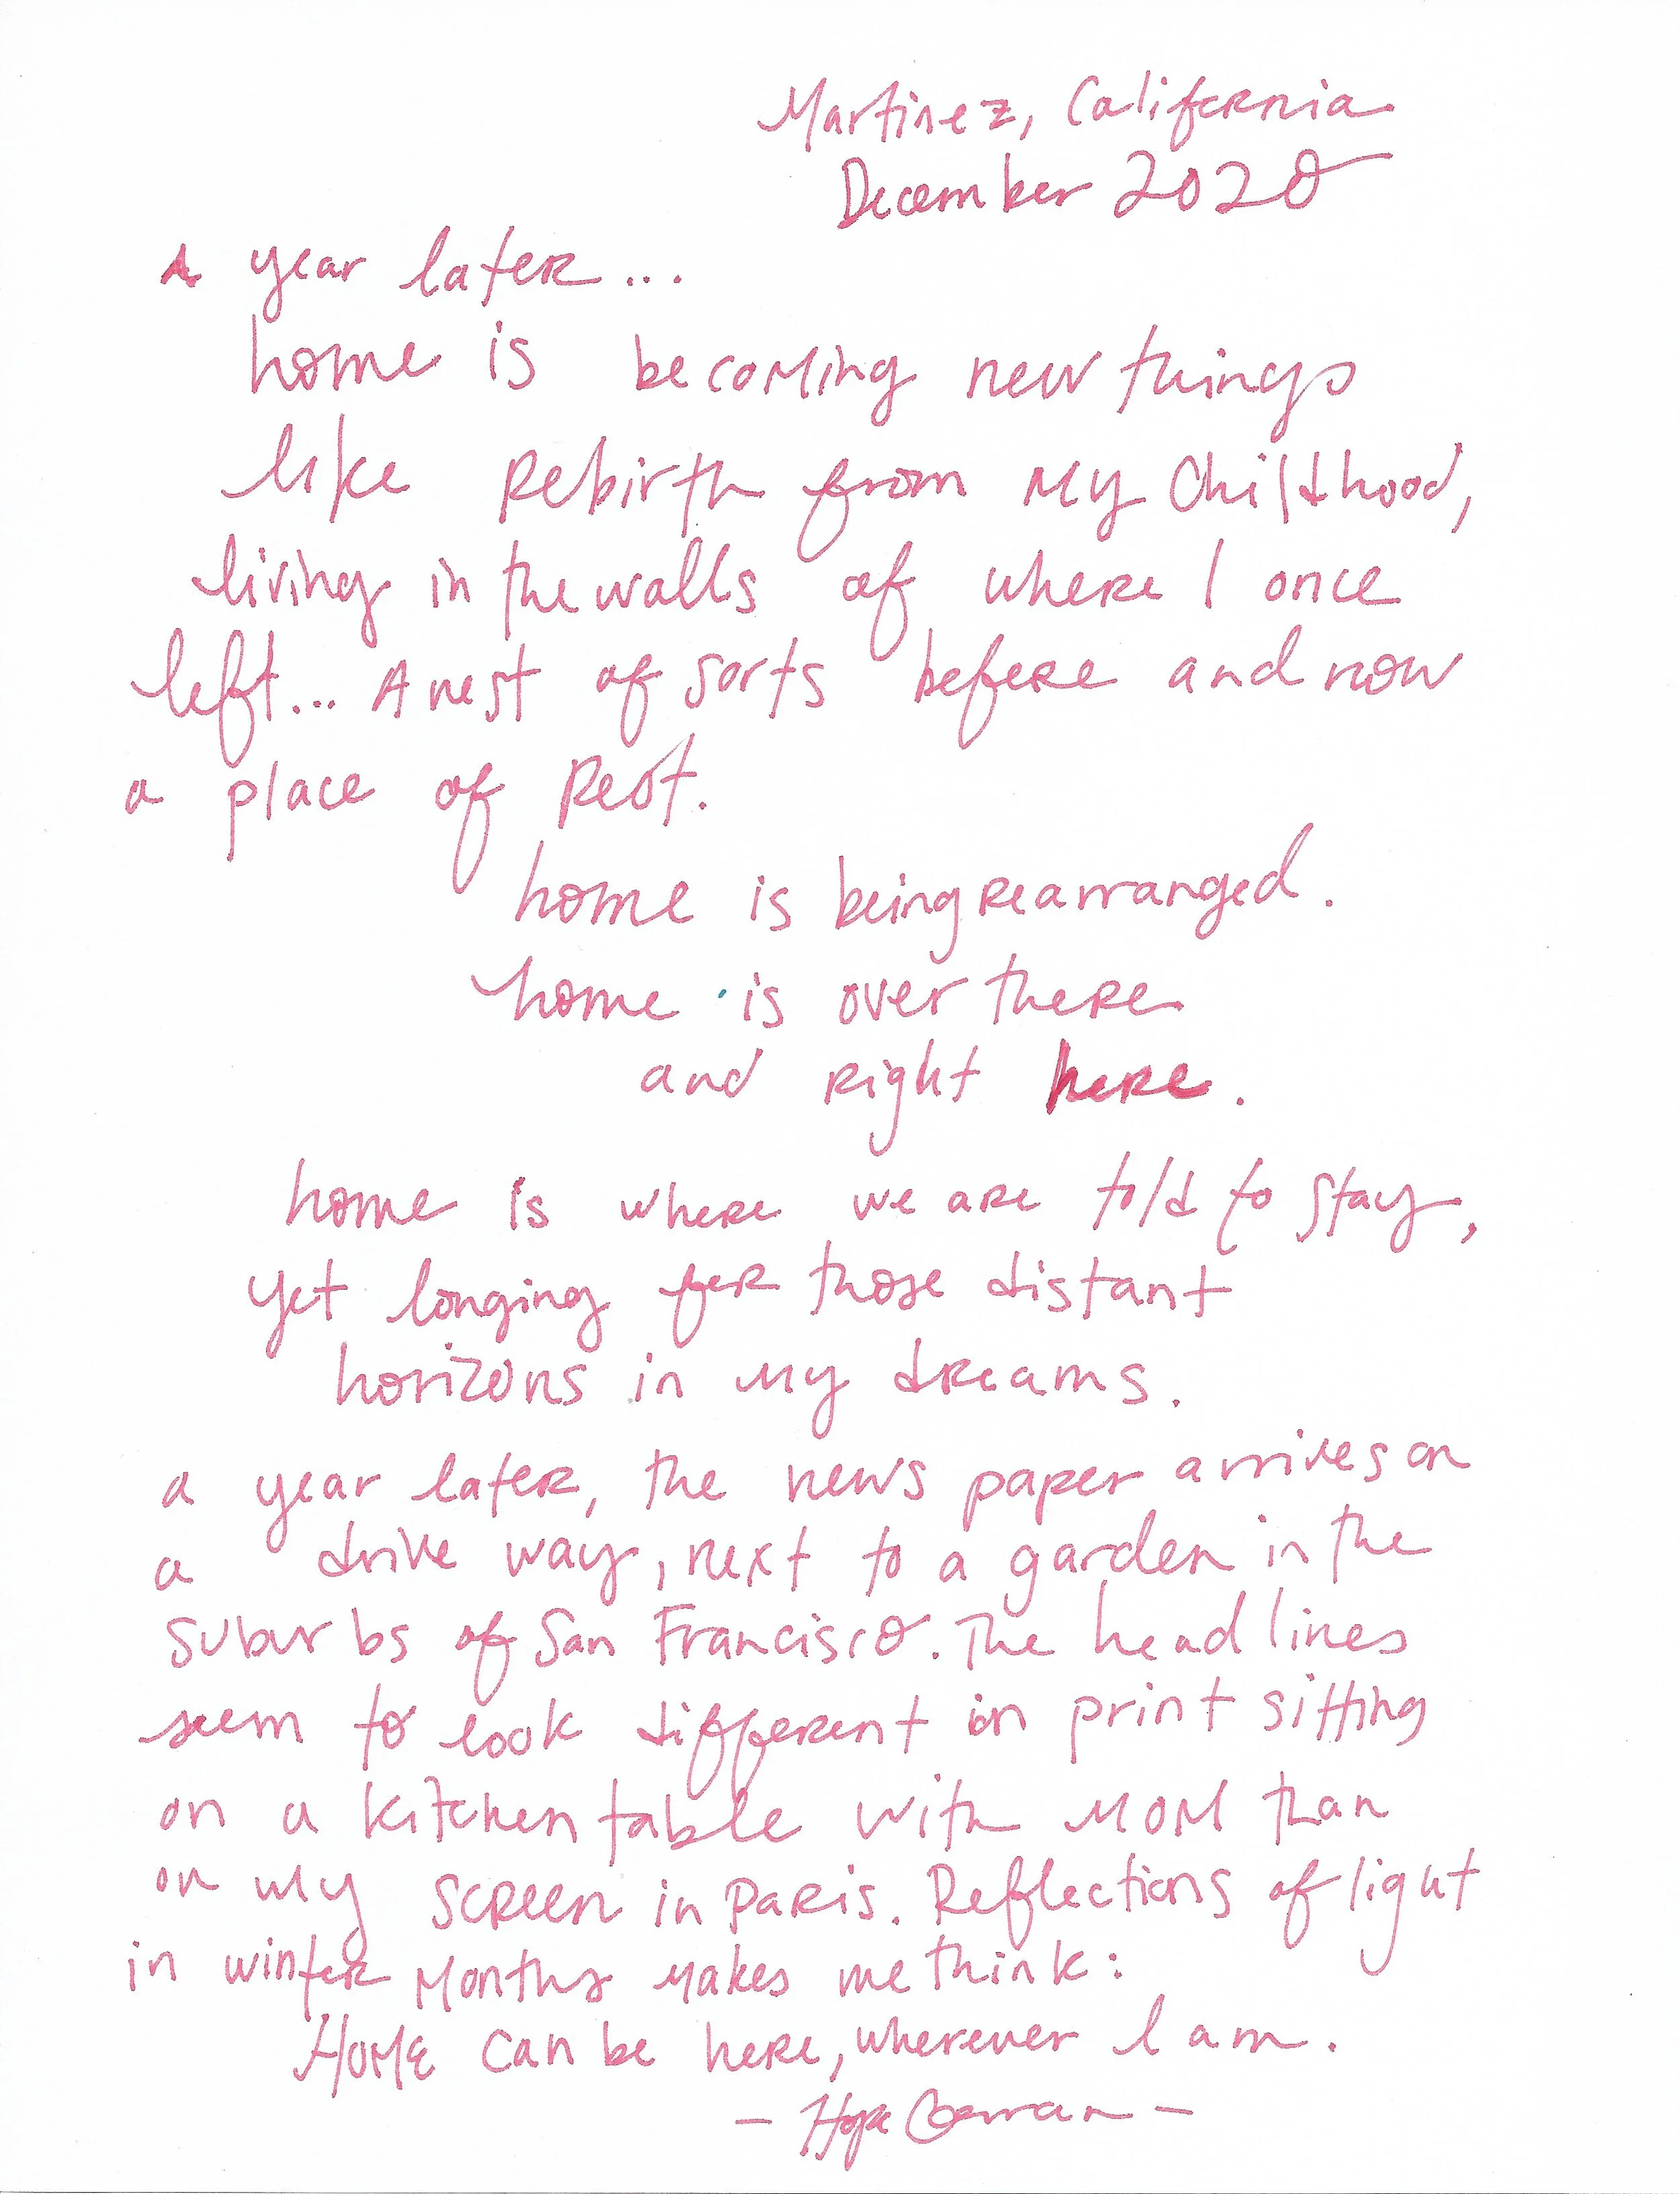 Martinez, California
December 2020
A year later...
home is becoming new things
like rebirth from my childhood,
living in the walls of where I once
left... A nest of sorts before and now
a place of rest.
home is being rearranged.
home is over there
and right here.
home is where we are told to stay,
yet longing for those distant
horizons in my dreams.
a year later, the news paper arrives on
a drive way, next to a garden in the
suburbs of San Francisco. The headlines
seem to look different in print sitting
on a kitchen table with mom than
on my screen in Paris. Reflections of light
in winter months makes me think:
HOME can be here, wherever I am.
- Hope -